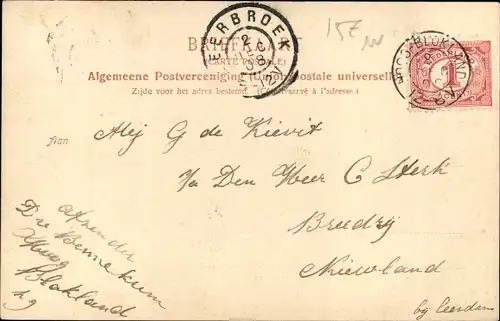 15E
BRIEFKAART
(CARTE POSTALE)
Algemeene Postvereeniging (Union postale universelle)
Zijde voor het adres bestemd. (Côté réservé à l'adresse.)
EERBROEK
HOOGBLOKLAND
1
Aan
Mej G de Kievit
p/a Den Heer C Sterk
Breedzij
Nieuwland
by Leerdam
Afzender
Bennekum
Blokland